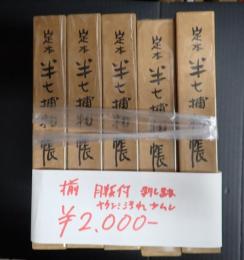 定本 半七捕物帳
定本 半七捕物帳
定本 半七捕物帳
定本 半七捕物帳
定本 半七捕物帳
揃 月報付
¥2,000-